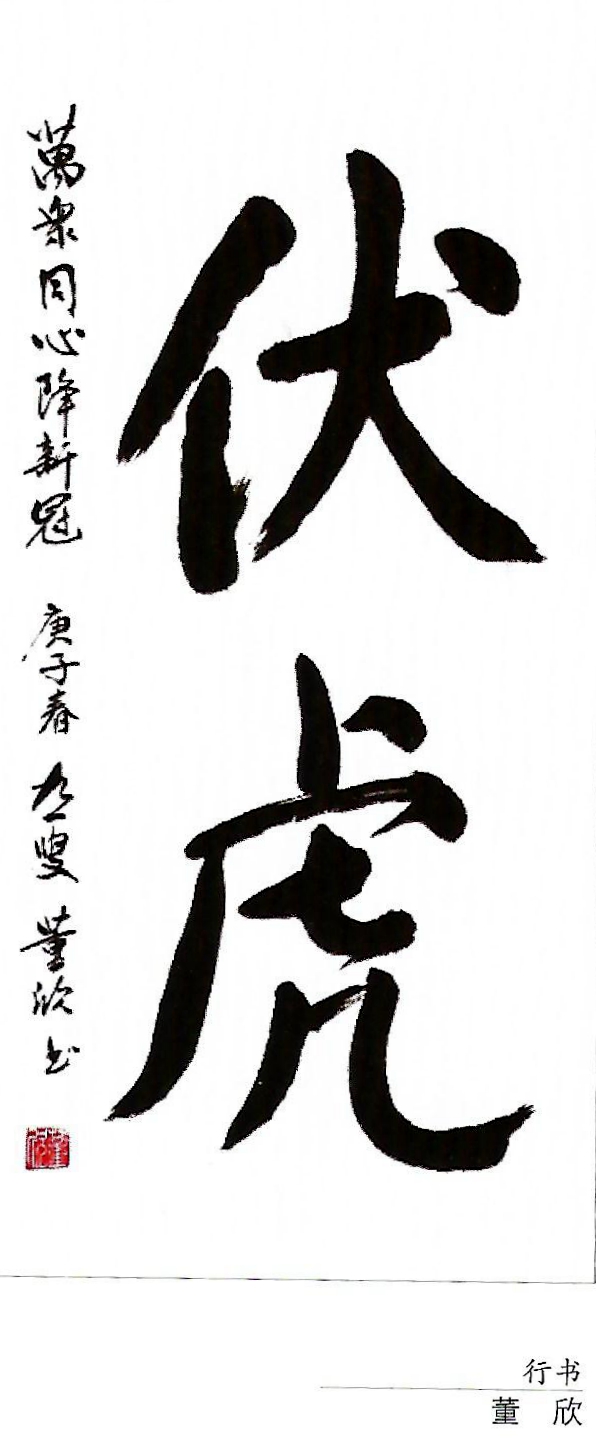 伏虎
萬衆同心降新冠 庚子春 九一叟 董欣书
行书
董 欣